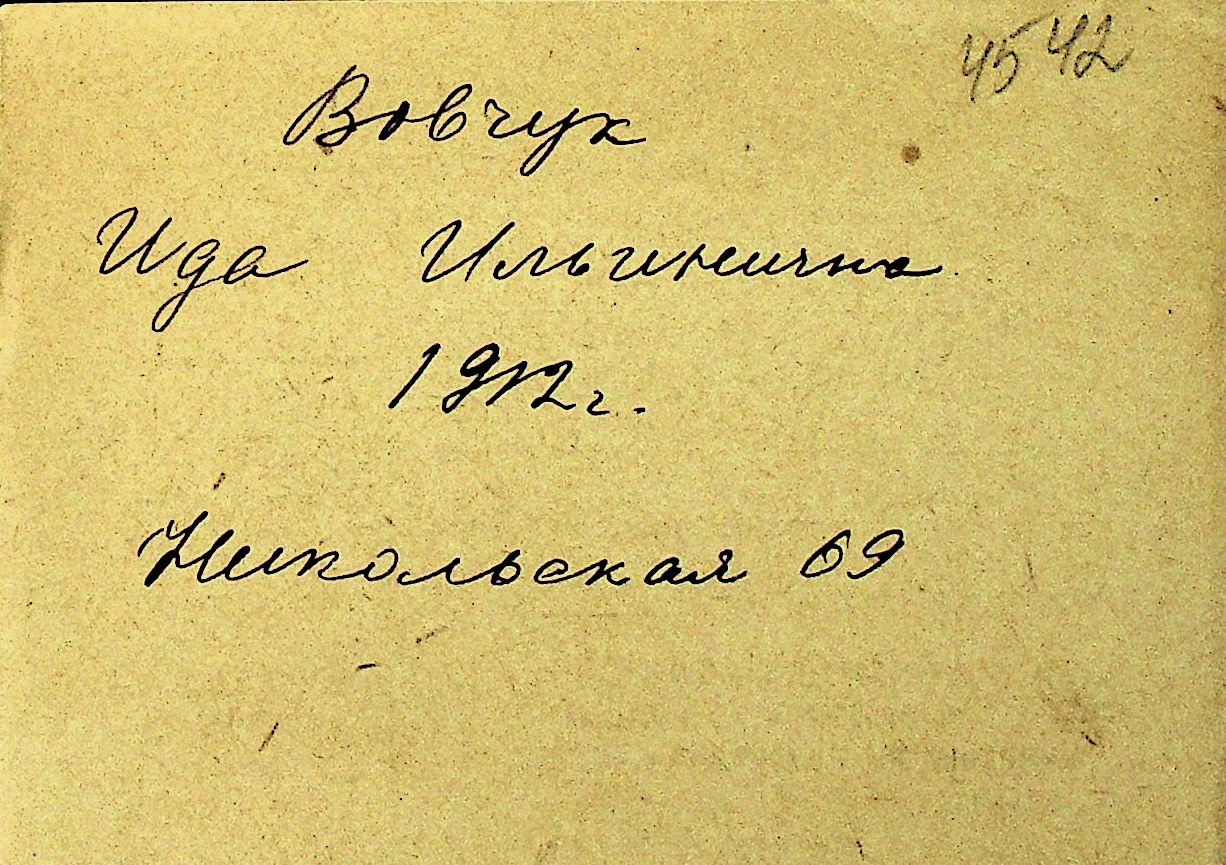 4542
Вовчук
Ида Ильинична
1912 г.
Никольская 69